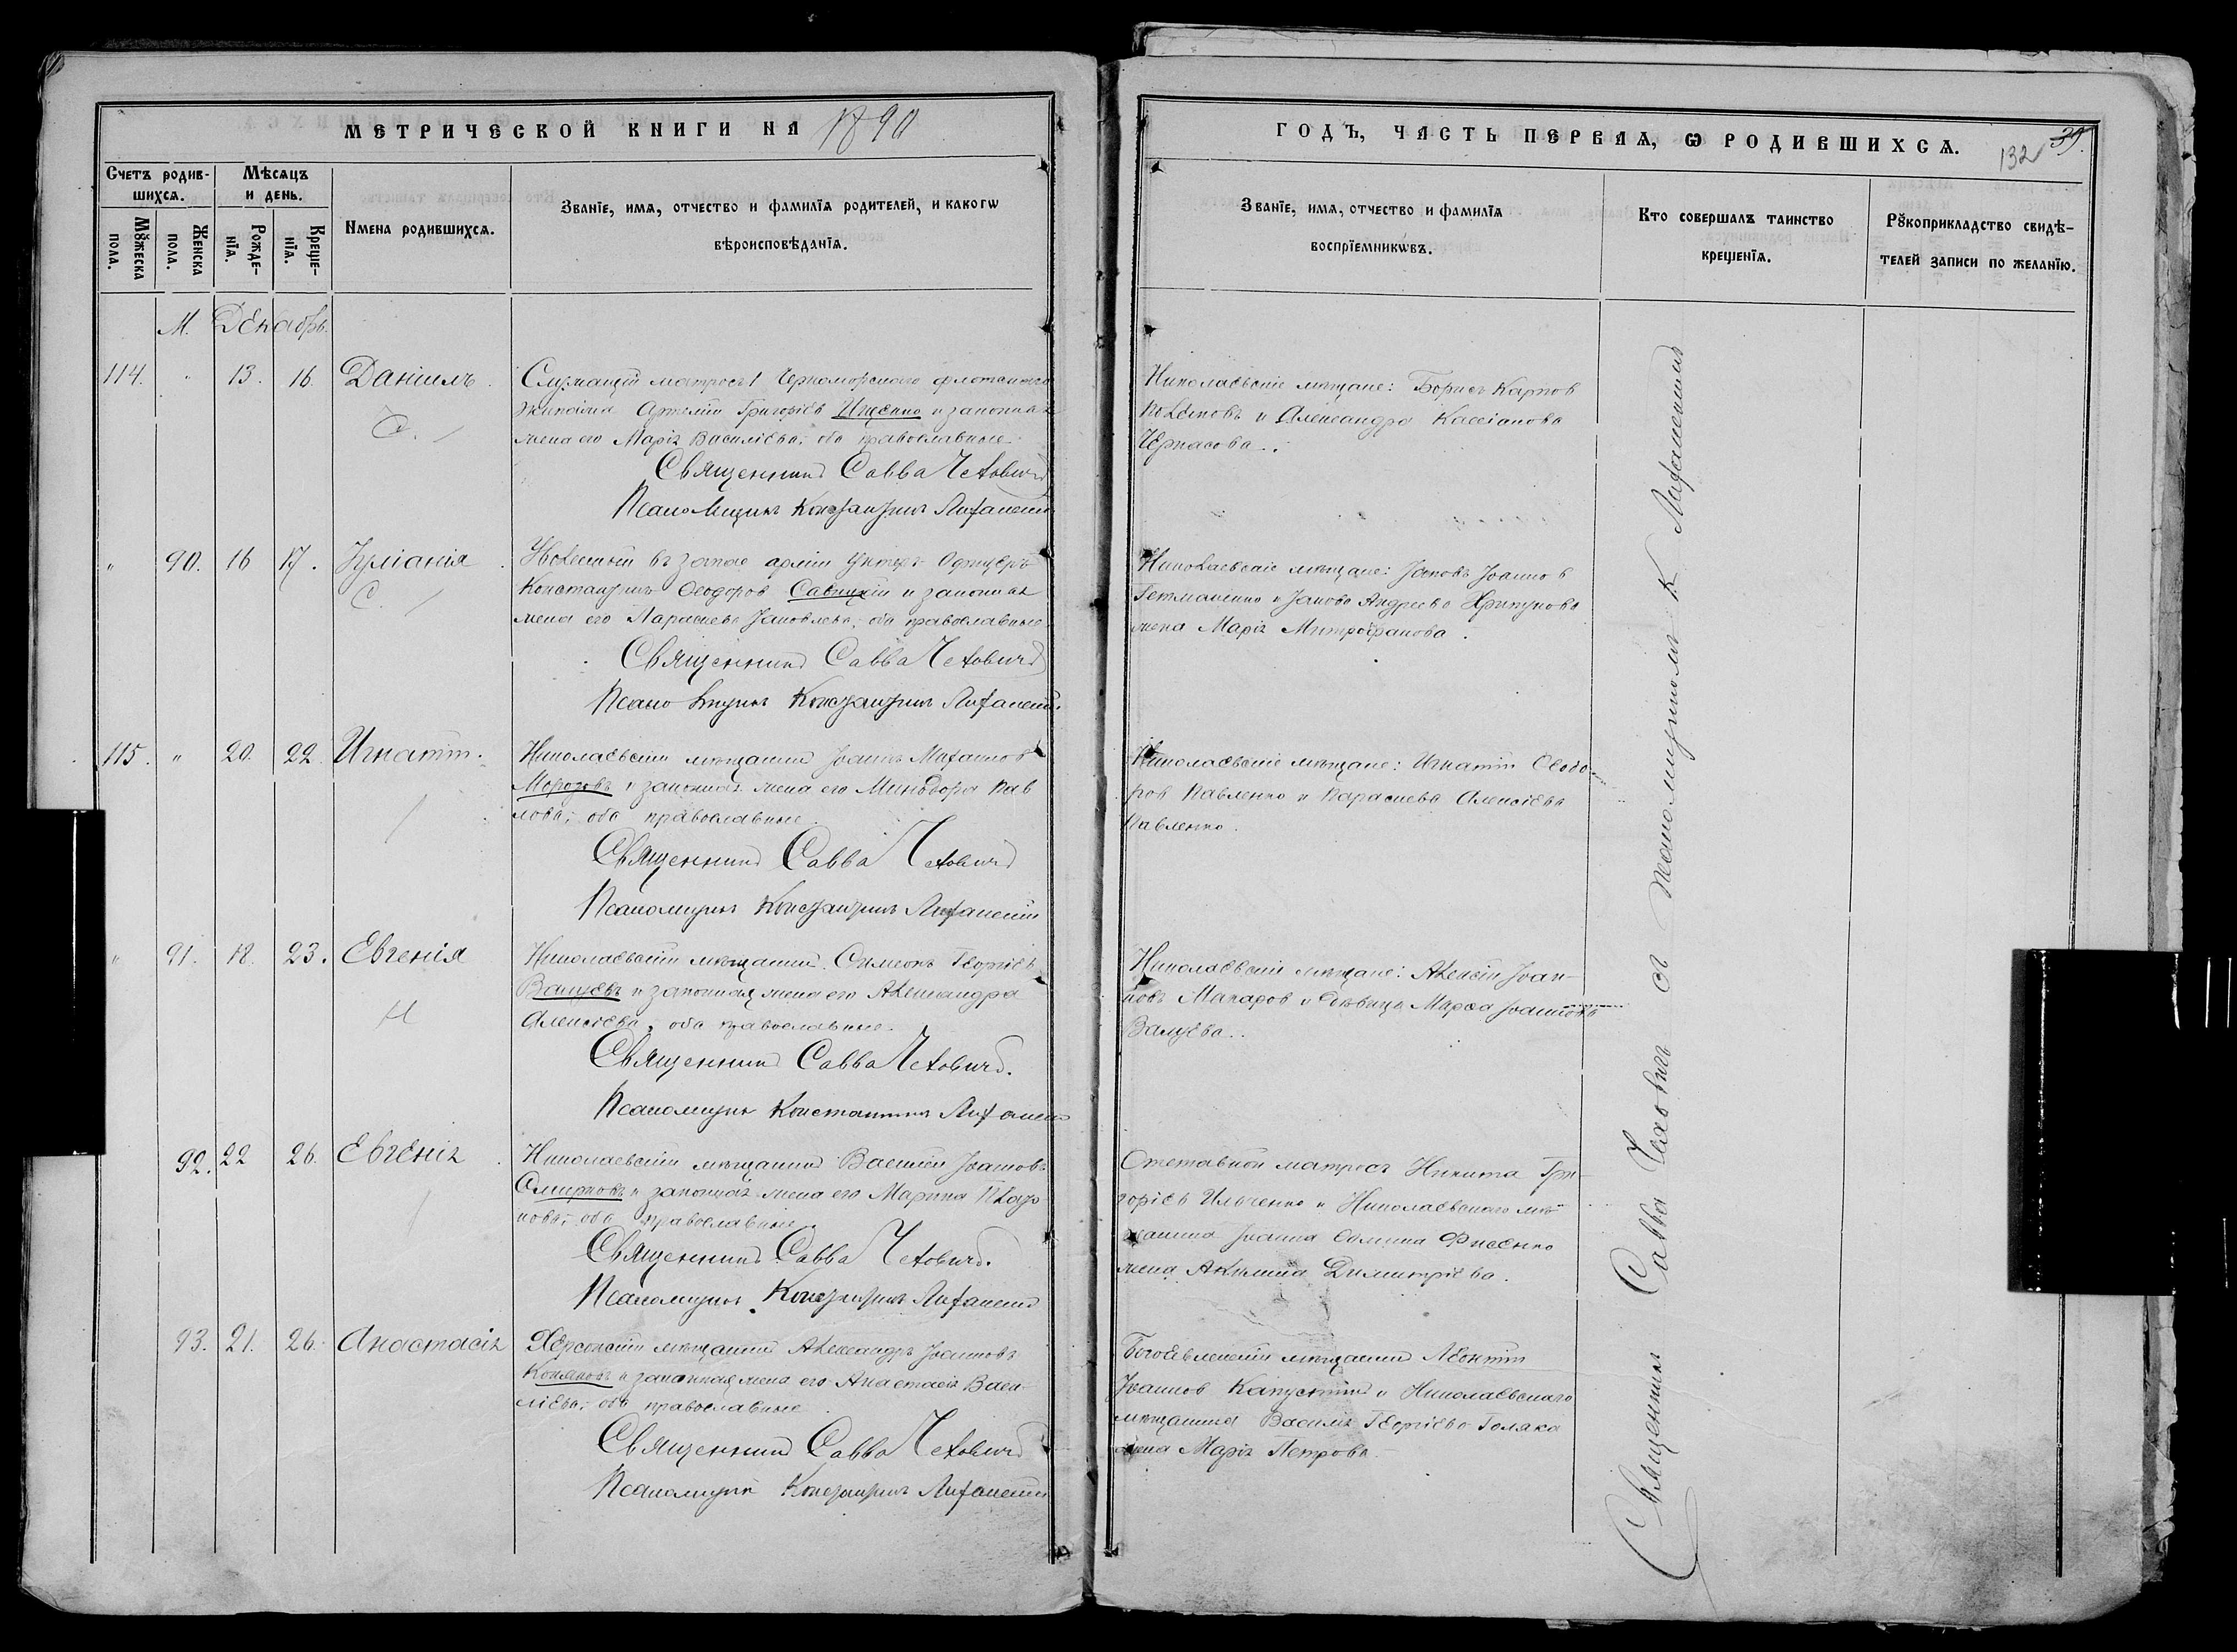 МЕТРИЧЕСКОЙ КНИГИ НА 1890
ГОДЪ, ЧАСТЬ ПЕРВАЯ, Ѡ РОДИВШИХСѦ.
132
39.
Счетъ родив-
шихсѧ.
Мѣсяцъ
и день.
Мꙋжеска
пола.
Женска
пола.
Рожде-
нїѧ.
Креще-
нїѧ.
Имена родившихсѧ.
Званїе, имѧ, отчество и фамилїѧ родителей, и какогѡ
вѣроисповѣданїѧ.
Званїе, имѧ, отчество и фамилїѧ
воспрїемникѡвъ.
Кто совершалъ таинство
крещенїѧ.
Рꙋкоприкладство свидѣ-
телей записи по желанїю.
М. Декабрь.
114. " 13. 16. Даніилъ.
С.
Служащій матросъ 1 Черноморскаго флотскаго
экипажа Григоріев Ищенко и законная
жена его Марія Василіева, оба православные.
Священникъ Савва Чехович
Псаломщикъ Константинъ
Николаевскіе мѣщане: Борисъ Карпов
и Александра Кассіанова
Черкасова.
" 90. 16 17. Іуліанія
С.
Уволенный въ запас арміи Унтеръ-Офицеръ
Константинъ Ѳеодоров Савицкій и законная
жена его Параскева Іаковлева, оба православные
Священникъ Савва Чехович
Псаломщикъ Константинъ
Николаевскіе мѣщане: Іаковъ Іоаннов
Гетманенко и Іакова Андреева Хрипунова
жена Марія Митрофанова.
115. " 20. 22 Игнатій.
Николаевскій мѣщанинъ Іоаннъ Михаилов
Морозовъ и законная жена его Минодора Пав
лова, оба православные.
Священникъ Савва Чехович
Псаломщикъ Константинъ
Николаевскіе мѣщане: Игнатій Ѳеодо-
ров Павленко и Параскева Алексіева
Павленко.
" 91. 18. 23. Евгенія
Н
Николаевскій мѣщанинъ Симеонъ Георгіев
и законная жена его Александра
Алексіева, оба православные.
Священникъ Савва Чехович.
Псаломщикъ Константинъ
Николаевскіе мѣщане: Алексій Іоан-
новъ Макаров и дѣвица Марѳа Іоаннова
92. 22 26. Евгенія
Николаевскій мѣщанинъ Василій Іоановъ
Смирновъ и законная жена его Марина
нова, оба православные.
Священникъ Савва Чехович.
Псаломщикъ Константинъ
Отставной матрос Никита Гри-
горіев Ильченко и Николаевскаго мѣ
щанина Іоанна Ѳомина Фисенко
жена Акилина Димитріева.
93. 21. 26. Анастасія
Херсонскій мѣщанинъ Александръ Іоанновъ
и законная жена его Анастасія Васи-
ліева, оба православные
Священникъ Савва Чехович
Псаломщикъ Константинъ
мѣщанинъ Леонтій
Іоаннов Капустинъ и Николаевскаго
мѣщанина Василія Георгіева Голяка
жена Марія Петрова.
Священникъ Савва Чеховичъ съ псаломщикомъ К